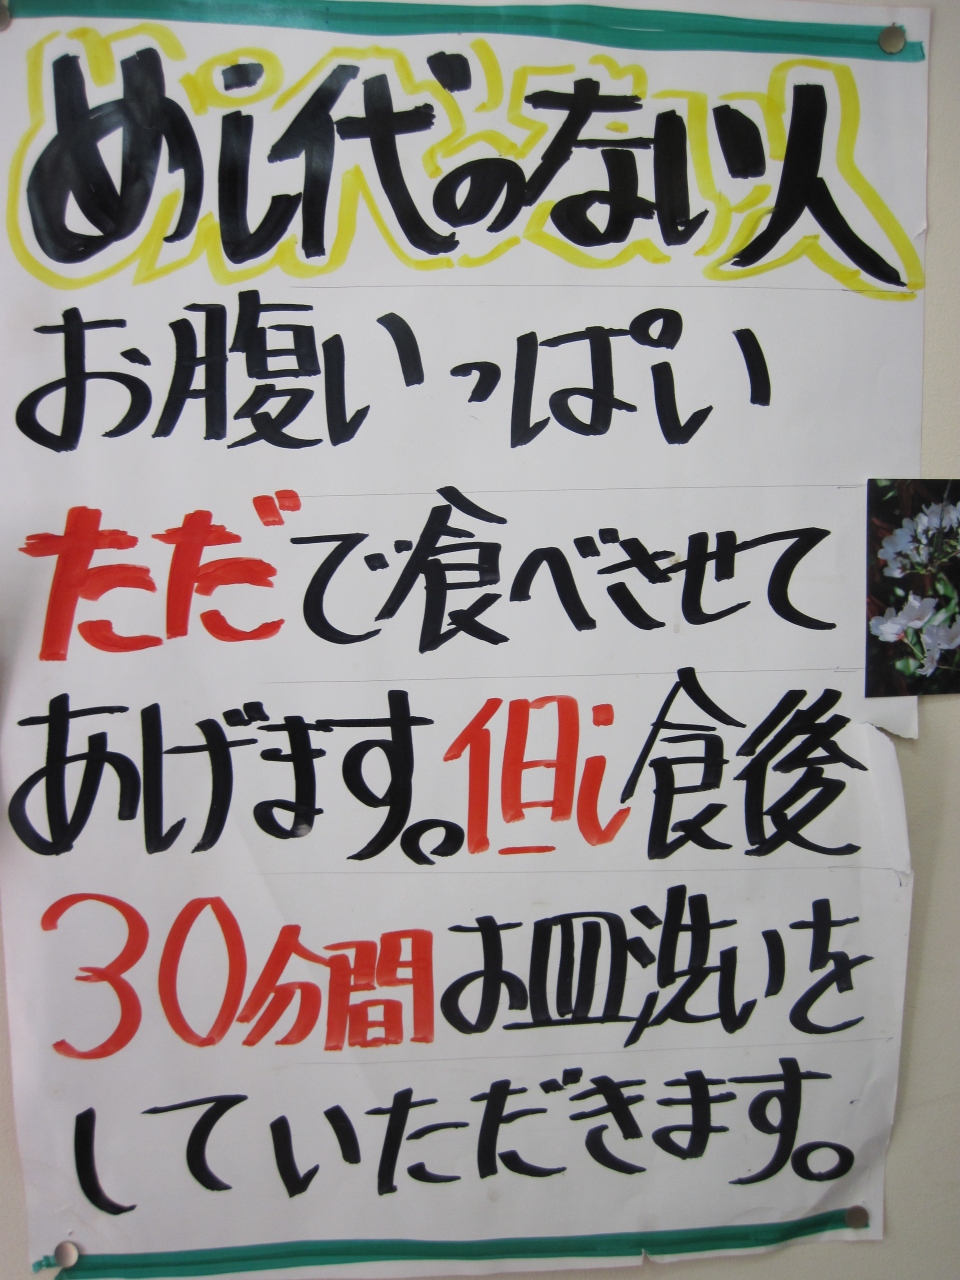 めし代のない人
お腹いっぱい
ただで食べさせて
あげます。但し食後
30分間お皿洗いを
していただきます。